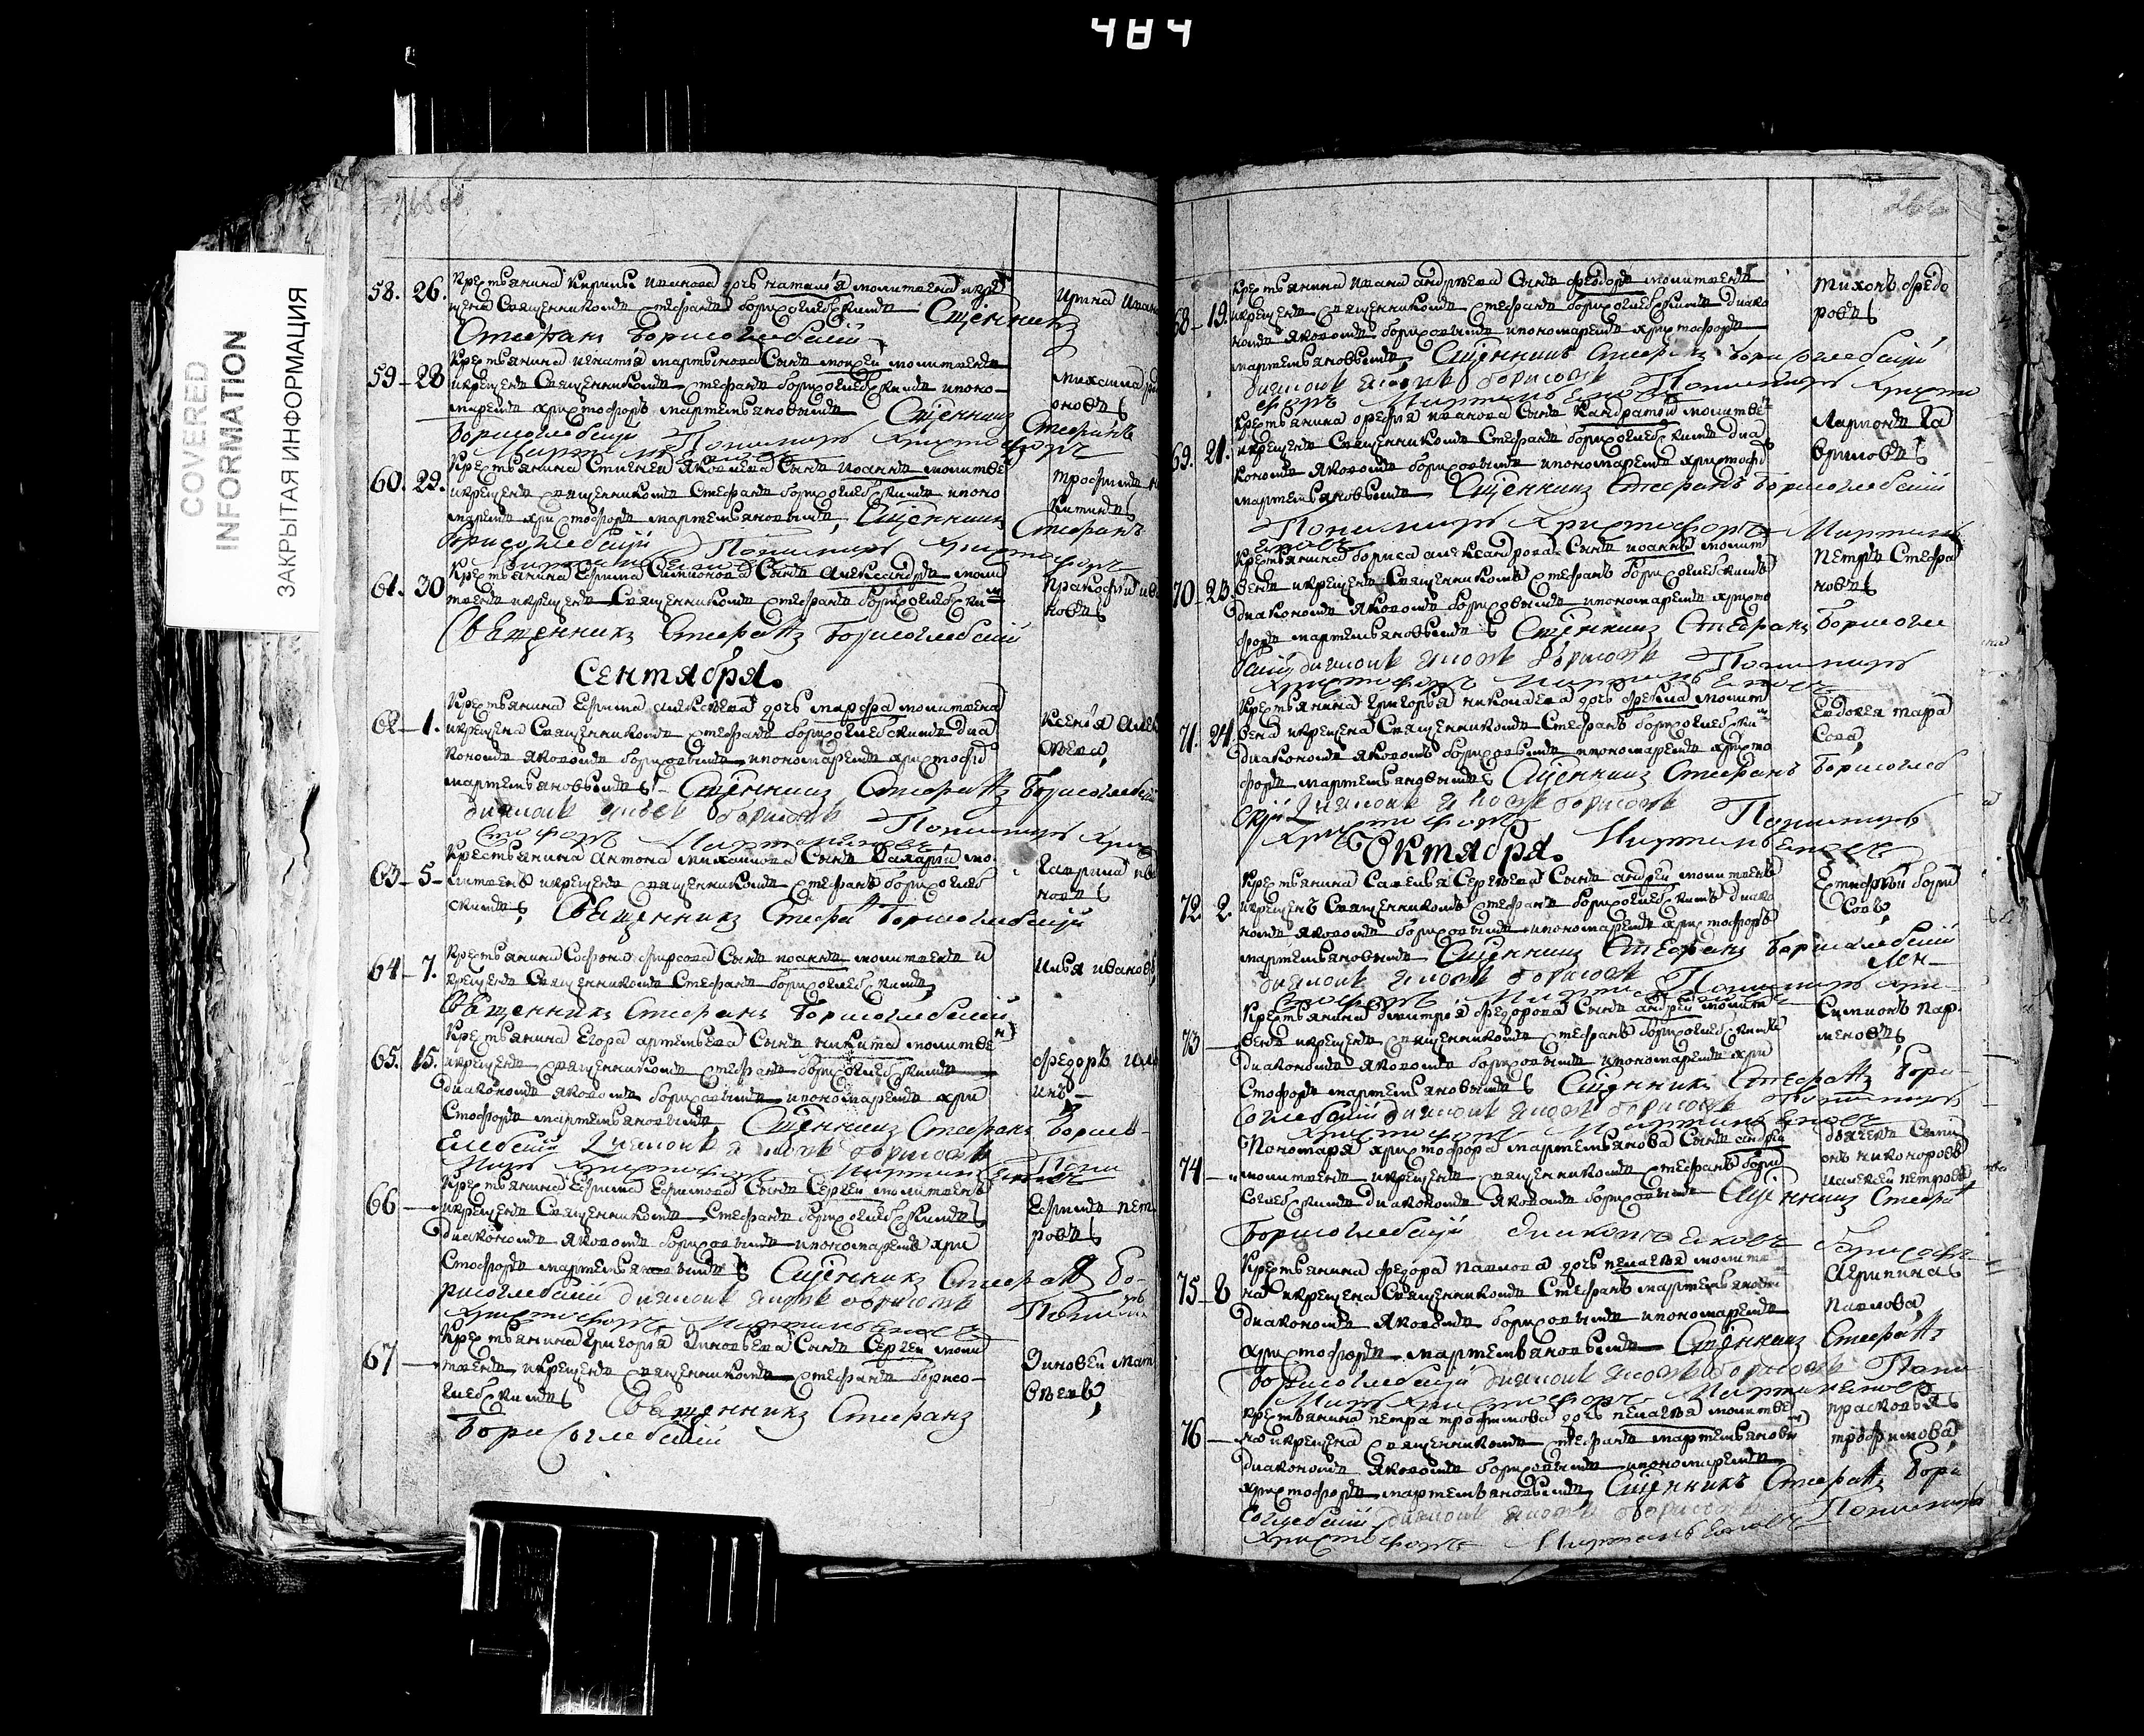 484
COVERED
INFORMATION
ЗАКРЫТАЯ ИНФОРМАЦИЯ
266
58. 26. Крестьянина Кирилы Иванова дочь наталія молитвена икре
щена Священникомъ Стефаномъ борисоглебскимъ Сщенникъ
Стефанъ Борисоглебский
Ирина Иван
59 - 28 Крестьянина игнатія мартынова Сынъ
икрещенъ Священникомъ Стефаномъ борисоглебскимъ ипоно-
маремъ христофоромъ мартемьяновымъ Сщенникъ Стефанъ
Борисоглебский Пономарь Христофоръ
60. 29. Крестьянина Яковлева Сынъ иоаннъ молитве
икрещенъ священникомъ Стефаномъ борисоглебскимъ ипоно
маремъ христофоромъ мартемьяновымъ, Сщенникъ Стефанъ
Борисоглебский Пономарь Христофоръ
61. 30 Крестьянина Ефима Симионова Сынъ Александръ моли
твенъ икрещенъ Священникомъ Стефаномъ борисоглебским
Священникъ Стефанъ Борисоглебский
Сентября.
62 - 1. Крестьянина Ефима алексеева дочь марфа молитвена
икрещена Священникомъ Стефаномъ борисоглебскимъ диа
кономъ яковомъ борисовымъ ипономаремъ христофо
мартемьяновымъ Сщенникъ Стефанъ Борисоглебский
диаконъ яковъ борисовъ Пономарь Хри
стофоръ Мартемьяновъ
Ксенія Алек
сеева,
63 - 5 - Крестьянина Антона михаилова Сынъ Захарій мо-
литвенъ икрещенъ священникомъ Стефаномъ борисоглеб
скимъ, Священникъ Стефанъ Борисоглебский
Гаврила ива
новъ
64 - 7. Крестьянина Софона фирсова Сынъ иоаннъ молитвенъ и
крещенъ Священникомъ Стефаномъ борисоглебскимъ,
Священникъ Стефанъ Борисоглебский
Илья ивановъ
65. 15. Крестьянина Егора артемьева Сынъ никита молитве
икрещенъ священникомъ стефаномъ борисоглебскимъ
диакономъ яковомъ борисовымъ ипономаремъ хри
стофоромъ мартемьяновымъ, Сщенникъ Стефанъ Борисо-
глебский диаконъ яковъ борисовъ Поно
марь Христофоръ Мартемьяновъ
66 - Крестьянина Ефима Ефимова Сынъ Сергей молитвенъ
икрещенъ Священникомъ Стефаномъ борисоглебскимъ
диакономъ яковомъ борисовымъ ипономаремъ хри
стофоромъ мартемьяновымъ Сщенникъ Стефанъ Бо-
рисоглебский диаконъ яковъ борисовъ Пономарь
Христофоръ Мартемьяновъ
Ефимъ пет
ровъ
67 - Крестьянина Григорья Зиновьева Сынъ Сергей моли
твенъ икрещенъ священникомъ стефаномъ борисо-
глебскимъ Священникъ Стефанъ
Борисоглебский
Зиновей мат
веевъ,
68 - 19. Крестьянина Ивана андреева Сынъ феодоръ молитвенъ
икрещенъ священникомъ стефаномъ борисоглебскимъ диако
номъ яковомъ борисовымъ ипономаремъ христофоромъ
мартемьяновымъ, Сщенникъ Стефанъ Борисоглебский
диаконъ яковъ борисовъ Пономарь Христо
форъ Мартемьяновъ
тихонъ федо
ровъ
69. 21. Крестьянина Иванова Сынъ Кандратій молитве
икрещенъ Священникомъ Стефаномъ борисоглебскимъ диа
кономъ яковомъ борисовымъ ипономаремъ христофо
мартемьяновымъ Сщенникъ Стефанъ Борисоглебский
Пономарь Христофоръ Мартемь
яновъ
Ларионъ Га
вриловъ
70 - 23. Крестьянина бориса александрова Сынъ иоаннъ молит
венъ икрещенъ Священникомъ Стефаномъ борисоглебскимъ
диакономъ яковомъ борисовымъ ипономаремъ христо
форомъ мартемьяновымъ Сщенникъ Стефанъ Борисогле
бский диаконъ яковъ борисовъ Пономарь
Христофоръ Мартемьяновъ
Петръ Стефа
новъ
71. 24. Крестьянина Григорья николаева дочь фекла молит
вена икрещена Священникомъ Стефаномъ борисоглебски
диакономъ яковомъ борисовымъ ипономаремъ христо
форомъ мартемьяновымъ Сщенникъ Стефанъ Борисоглеб
ский диаконъ яковъ борисовъ Пономарь
Христофоръ Мартемьяновъ
Евдокея тара
сова,
Октября.
72 2. Крестьянина Савелья Сергеева Сынъ андрей молитвенъ
икрещенъ Священникомъ Стефаномъ борисоглебскимъ диако
номъ яковомъ борисовымъ ипономаремъ христофоромъ
мартемьяновымъ Сщенникъ Стефанъ Борисоглебский
диаконъ яковъ борисовъ Пономарь Хри-
стофоръ
73 - Крестьянина дмитрія федорова Сынъ андрей молит
венъ икрещенъ священникомъ стефаномъ борисоглебскимъ
диакономъ яковомъ борисовымъ ипономаремъ хри
стофоромъ мартемьяновымъ Сщенникъ Стефанъ Бори-
соглебский диаконъ яковъ борисовъ Пономарь
Христофоръ Мартемьяновъ
Симионъ пар-
меновъ,
74 - Пономаря христофора мартемьянова Сынъ андрей
молитвенъ икрещенъ священникомъ стефаномъ бори
соглебскимъ диакономъ яковомъ борисовымъ Сщенникъ Стефанъ
Борисоглебский диаконъ яковъ Борисовъ
75 - 8 Крестьянина федора Павлова дочь пелагея молитве
на икрещена Священникомъ Стефаномъ мартемьянов
диакономъ яковомъ борисовымъ ипономаремъ
христофоромъ мартемьяновымъ Сщенникъ Стефанъ
Борисоглебский диаконъ яковъ борисовъ Поно
марь Христофоръ Мартемьяновъ
Агрипина
павлова,
76 - Крестьянина петра трофимова дочь пелагея молитве
на икрещена священникомъ стефаномъ мартемьянов
диакономъ яковомъ борисовымъ ипономаремъ
христофоромъ мартемьяновымъ, Сщенникъ Стефанъ Бори
соглебский диаконъ яковъ борисовъ Пономарь
Христофоръ Мартемьяновъ
прасковья
трофимова